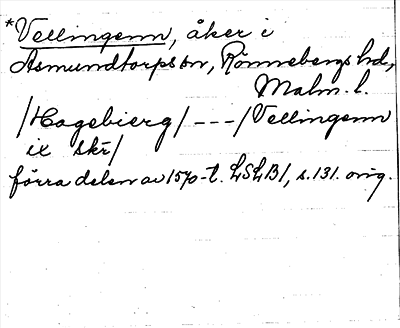 *Vellingenn, åker i
Asmundtorps sn, Rönnebergs hd,
Malm. l.
/Hagebierg/ --- /Vellingenn
ix skr/
förra delen av 1570-t. LSLB1, s. 131. orig.